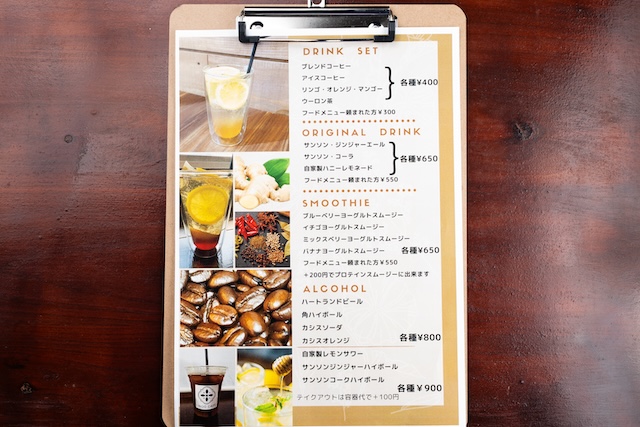 DRINK SET
ブレンドコーヒー
アイスコーヒー
リンゴ・オレンジ・マンゴー
各種¥400
ウーロン茶
フードメニュー頼まれた方¥300
ORIGINAL DRINK
サンソン・ジンジャーエール
サンソン・コーラ
各種¥650
自家製ハニーレモネード
フードメニュー頼まれた方¥550
SMOOTHIE
ブルーベリーヨーグルトスムージー
イチゴヨーグルトスムージー
ミックスベリーヨーグルトスムージー
バナナヨーグルトスムージー 各種¥650
フードメニュー頼まれた方¥550
+200円でプロテインスムージーに出来ます
ALCOHOL
ハートランドビール
角ハイボール
カシスソーダ
カシスオレンジ 各種¥800
自家製レモンサワー
サンソンジンジャーハイボール
サンソンコークハイボール
各種¥900
テイクアウトは容器代で+100円